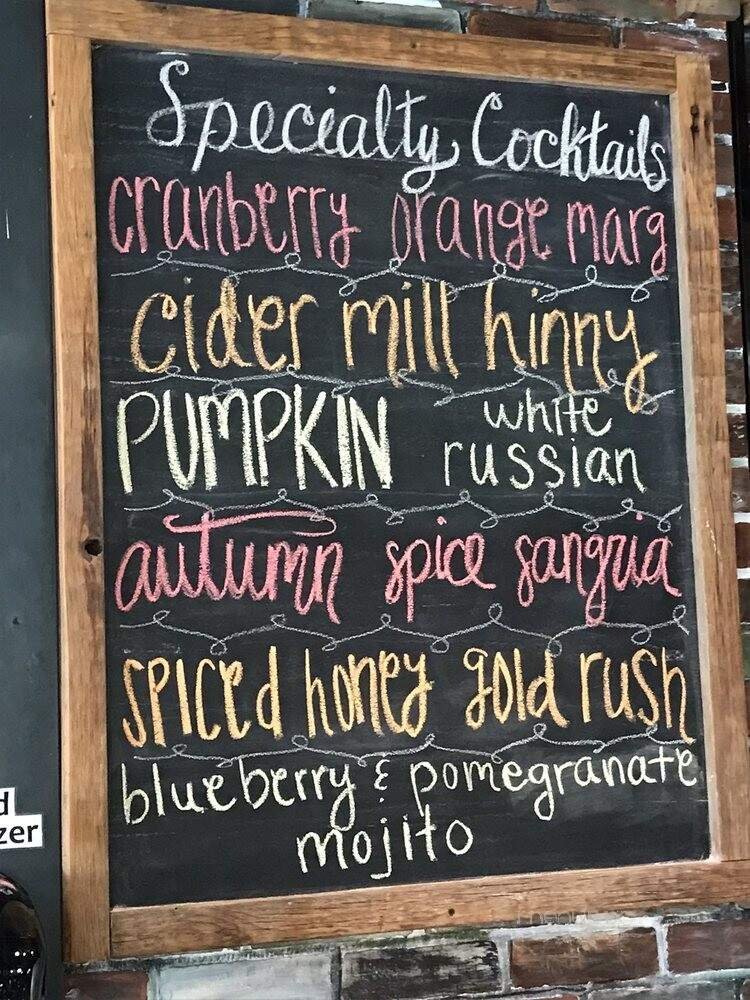 Specialty Cocktails
cranberry orange marg
cider mill hinny
PUMPKIN white russian
autumn spice sangria
spiced honey gold rush
blueberry & pomegranate
mojito
d
zer